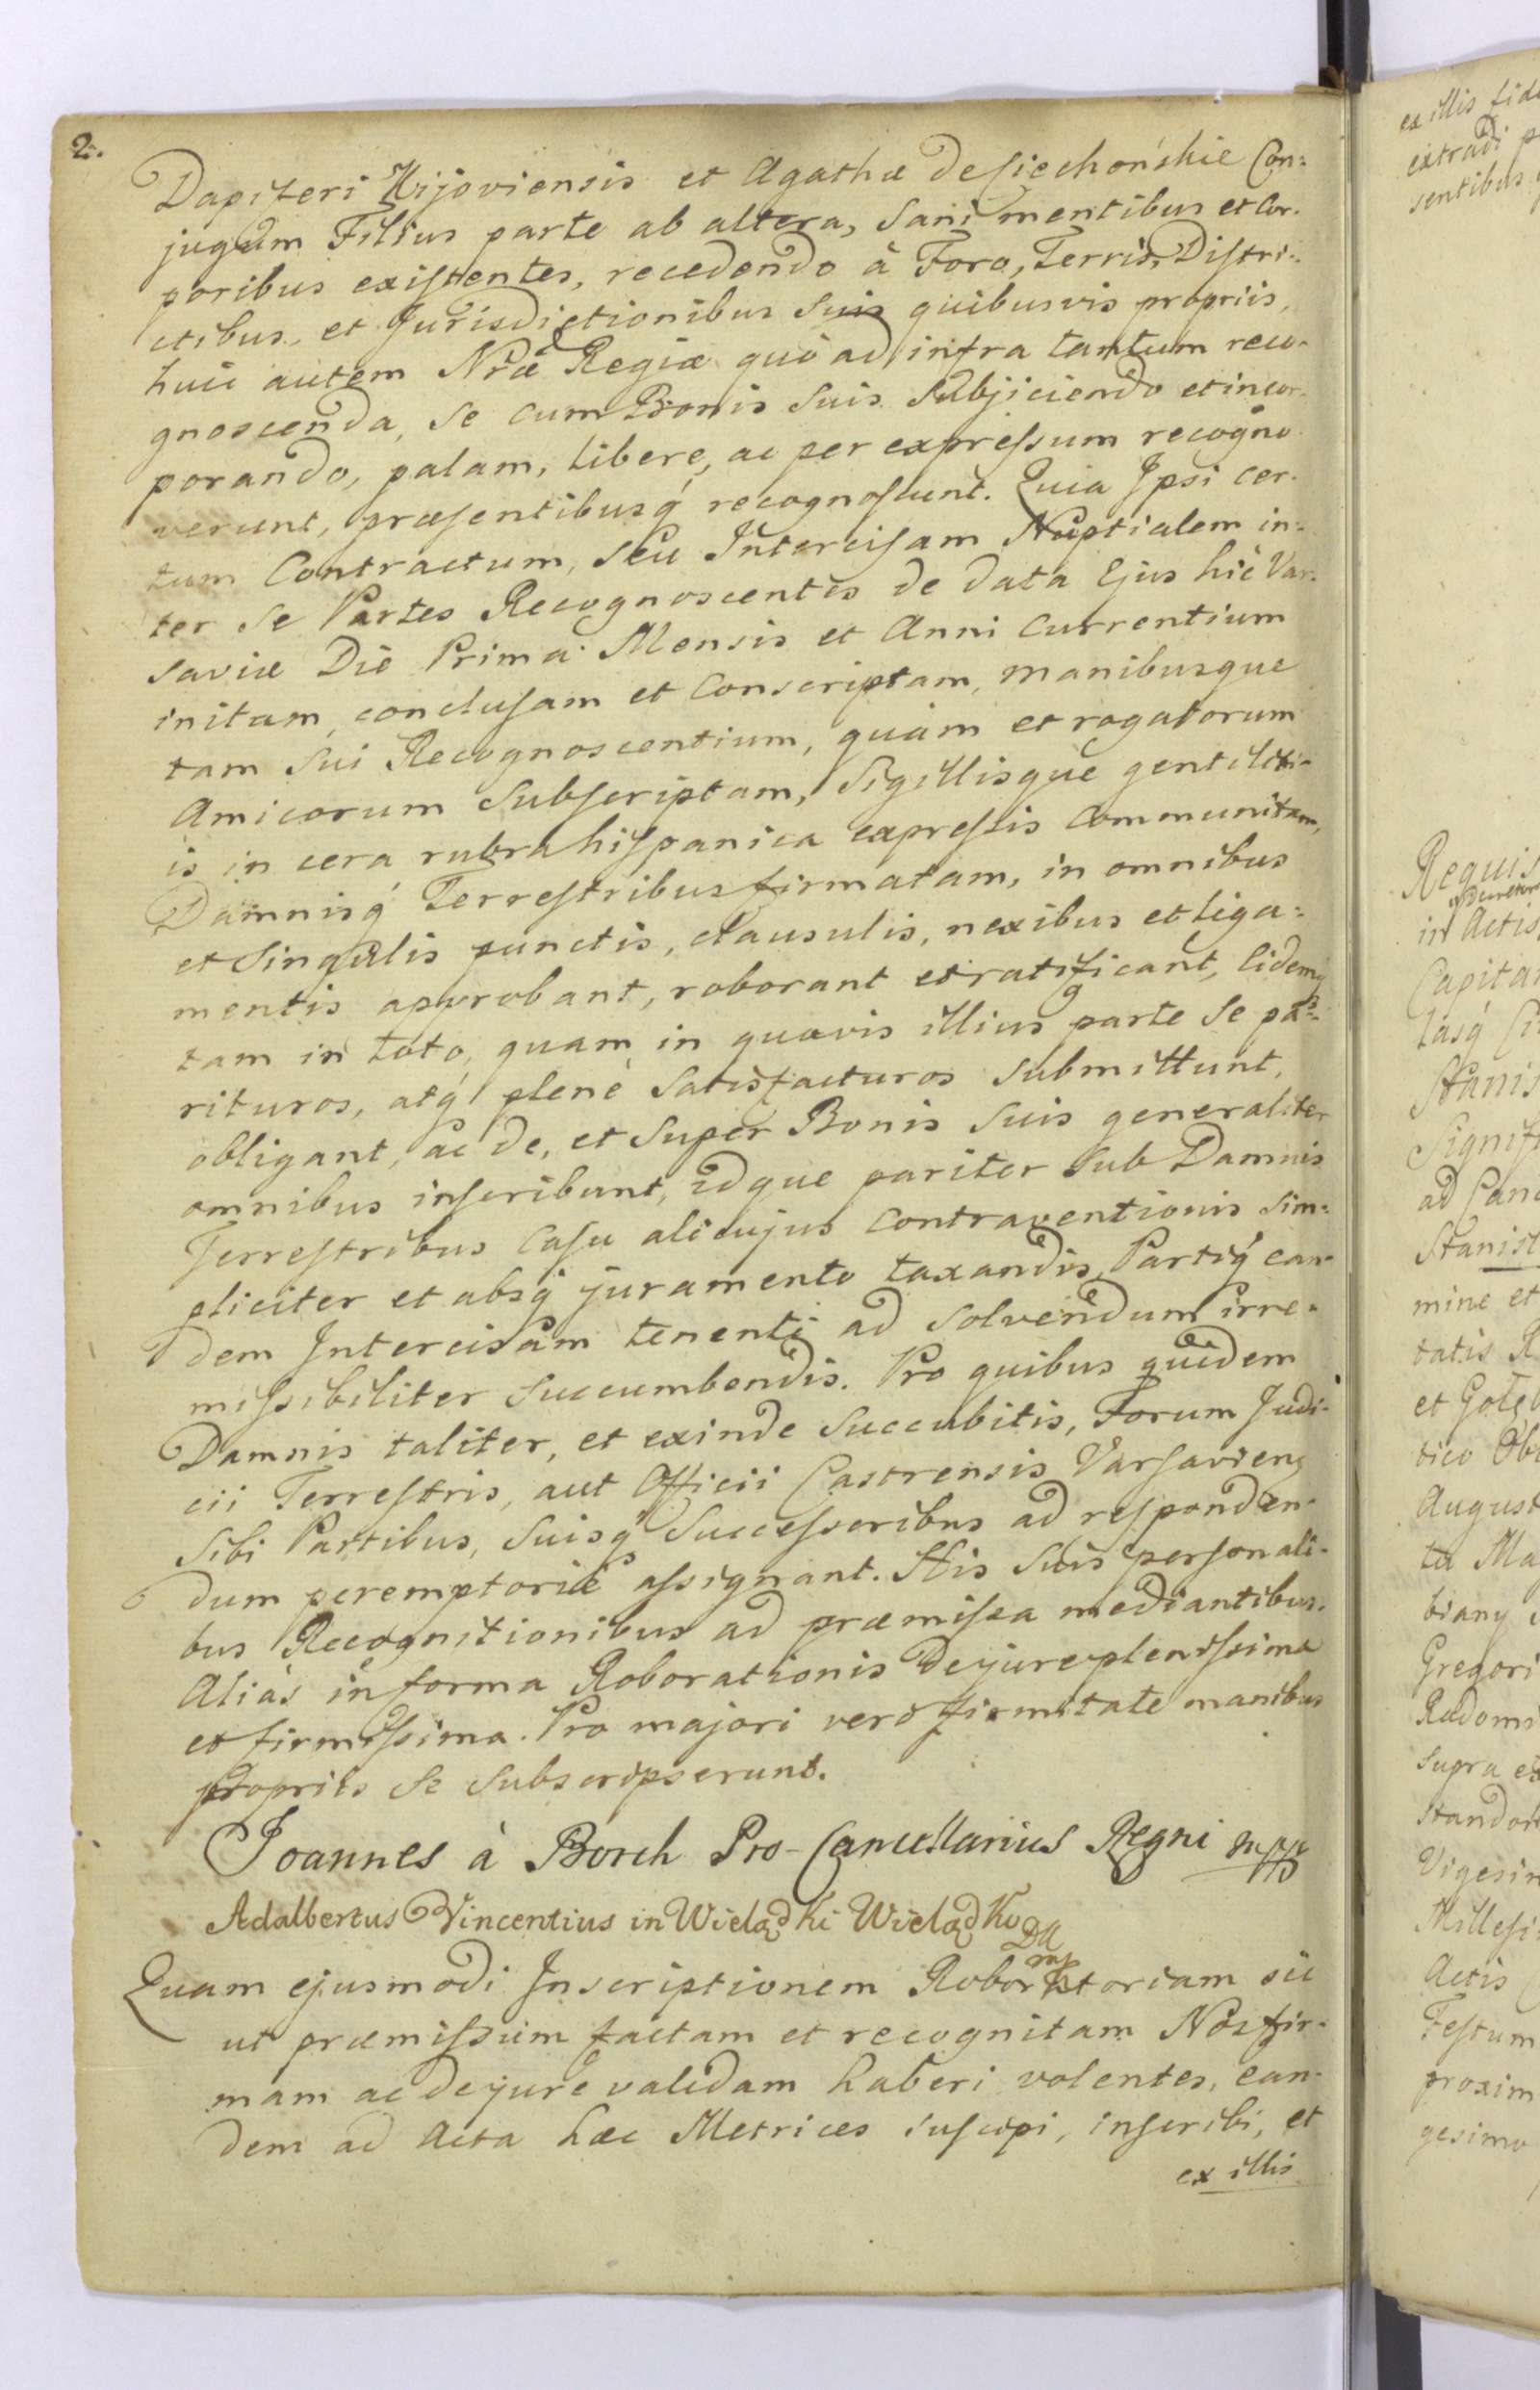 2.
Dapiferi Kijoviensis et Agathæ de Ciechońskie Con:
jugum Filius parte ab altera, Sani mentibus et Cor-
poribus existentes, recedendo à Foro, Terris, Distri-
ctibus, et Jurisdictionibus Suis quibusvis propriis,
huic autem Nræ Regiæ quò ad infra tantum reco-
gnoscenda, Se cum Bonis Suis Subjiciendo et incor-
porando, palam, libere, ac per expressum recogno-
verunt, præsentibusq́ recognoscunt. Quia Ipsi cer-
tum Contractum, Seu Intercisam Nuptialem in:
ter Se Partes Recognoscentes de data Ejus hic Var-
saviæ Die Prima Mensis et Anni Currentium
initam, conclusam et Conscriptam, manibusque
tam Sui Recognoscentium, quàm et rogatorum
Amicorum Subscriptam, Sigillisque gentiliti-
is in cera rubra hispanica expressis Communitam,
Damnisq́ Terrestribus firmatam, in omnibus
et Singulis punctis, clausulis, nexibus et liga:
mentis approbant, roborant et ratificant, Eidemq́
tam in toto, quam in quavis illius parte Se pa-
rituros, atq́ plenè Satisfacturos Submittunt,
obligant, ac de, et Super Bonis Suis generaliter
omnibus inscribunt, idque pariter Sub Damnis
Terrestribus Casu alicujus Contraventionis Sim:
pliciter et absq́ juramento taxandis, Partiq́ ean-
dem Intercisam tenenti ad Solvendum irre-
missibiliter Succumbendis. Pro quibus quidem
Damnis taliter, et exinde Succubitis, Forum Judi-
cii Terrestris, aut Officii Castrensis Varsaviens
Sibi Partibus, Suisq́ Successoribus ad responden-
dum peremptoriè assignant. His Suis personali-
bus Recognitionibus ad præmissa mediantibus.
Aliàs in forma Roborationis De jure plenissima
et firmissima. Pro majori verò firmitate manibus
propriis Se Subscripserunt.
Joannes à Borch Pro-Cancellarius Regni mpp
Adalbertus Vincentius in Wielądki Wielądko
Quam ejusmodi Inscriptionem Roboratoriam sic
ut præmissum factam et recognitam Nos fir-
mam ac de jure validam haberi volentes, ean-
dem ad Acta hæc Metrices suscipi, inscribi, et
ex illis
ex illis
extradi
sentibus
Requis
in Actis
Capita
tasq́
Stanis
Signif
ad Canc
Stanisl
mine et
tatis R
et Gołę
tico Ob
August
ta Ma
Gregori
Radomi
Supra
Vigesi
Millesi
Actis
Festum
proxim
gesimo